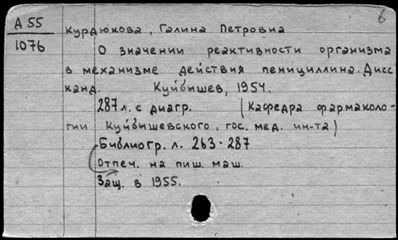 А 55
1076
Курдюкова, Галина Петровна
О значении реактивности организма
в механизме действия пенициллина. Дисс
канд. Куйбышев, 1954.
287 л. с диагр. (Кафедра фармаколо-
гии Куйбышевского, гос. мед. ин-та)
Библиогр. л. 263-287
Отпеч. на пиш. маш.
Защ. в 1955.